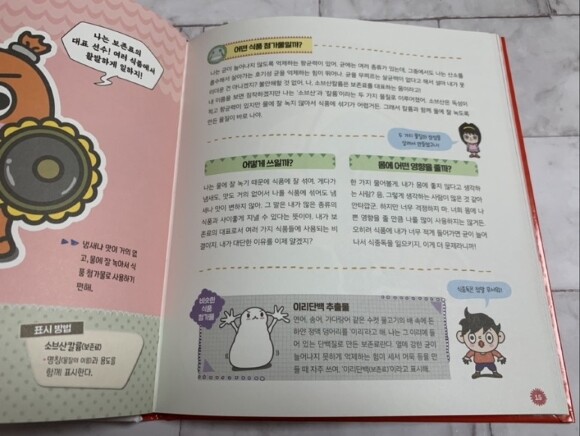 나는 보존료의
대표 선수! 여러 식품에서
활발하게 일하지!
냄새나 맛이 거의 없
고, 물에 잘 녹아서 식
품 첨가물로 사용하기
편해.
표시 방법
소브산칼륨(보존료)
- 명칭(물질의 이름)과 용도를
함께 표시한다.
어떤 식품 첨가물일까?
나는 균이 늘어나지 않도록 억제하는 항균력이 있어. 균에는 여러 종류가 있는데, 그중에서도 나는 산소를
흡수해서 살아가는 호기성 균을 억제하는 힘이 뛰어나. 균을 무찌르는 살균력이 없다고 해서 설마 내가 못
미더운 건 아니겠지? 불안해할 것 없어. 나, 소브산칼륨은 보존료를 대표하는 몸이라고!
내 이름을 보면 짐작하겠지만 나는 '소브산'과 '칼륨'이라는 두 가지 물질로 이루어졌어. 소브산은 독성이
적고 항균력이 있지만 물에 잘 녹지 않아서 식품에 섞기가 어렵거든. 그래서 칼륨과 함께 물에 잘 녹도록
만든 물질이 바로 나야.
두 가지 물질의 장점을
합쳐서 만들었구나!
어떻게 쓰일까?
나는 물에 잘 녹기 때문에 식품에 잘 섞여. 게다가
냄새도, 맛도 거의 없어서 나를 식품에 섞어도 냄
새나 맛이 변하지 않아. 그 말은 내가 많은 종류의
식품과 사이좋게 지낼 수 있다는 뜻이야. 내가 보
존료의 대표로서 여러 가지 식품들에 사용되는 비
결이지. 내가 대단한 이유를 이제 알겠지?
몸에 어떤 영향을 줄까?
한 가지 물어볼게. 내가 몸에 좋지 않다고 생각하
는 사람? 음, 그렇게 생각하는 사람이 많은 것 같아
안타깝군. 하지만 너무 걱정하지 마. 너희 몸에 나
쁜 영향을 줄 만큼 나를 많이 사용하지는 않거든.
오히려 식품에 내가 너무 적게 들어가면 균이 늘어
나서 식중독을 일으키지. 이게 더 문제라니까!
비슷한
식품
첨가물
이리단백 추출물
연어, 송어, 가다랑어 같은 수컷 물고기의 배 속에 든
하얀 정액 덩어리를 '이리'라고 해. 나는 그 이리에 들
어 있는 단백질로 만든 보존료란다. 열에 강한 균이
늘어나지 못하게 억제하는 힘이 세서 어묵 등을 만
들 때 자주 쓰여. '이리단백(보존료)'이라고 표시해.
식중독은 정말 무서워!